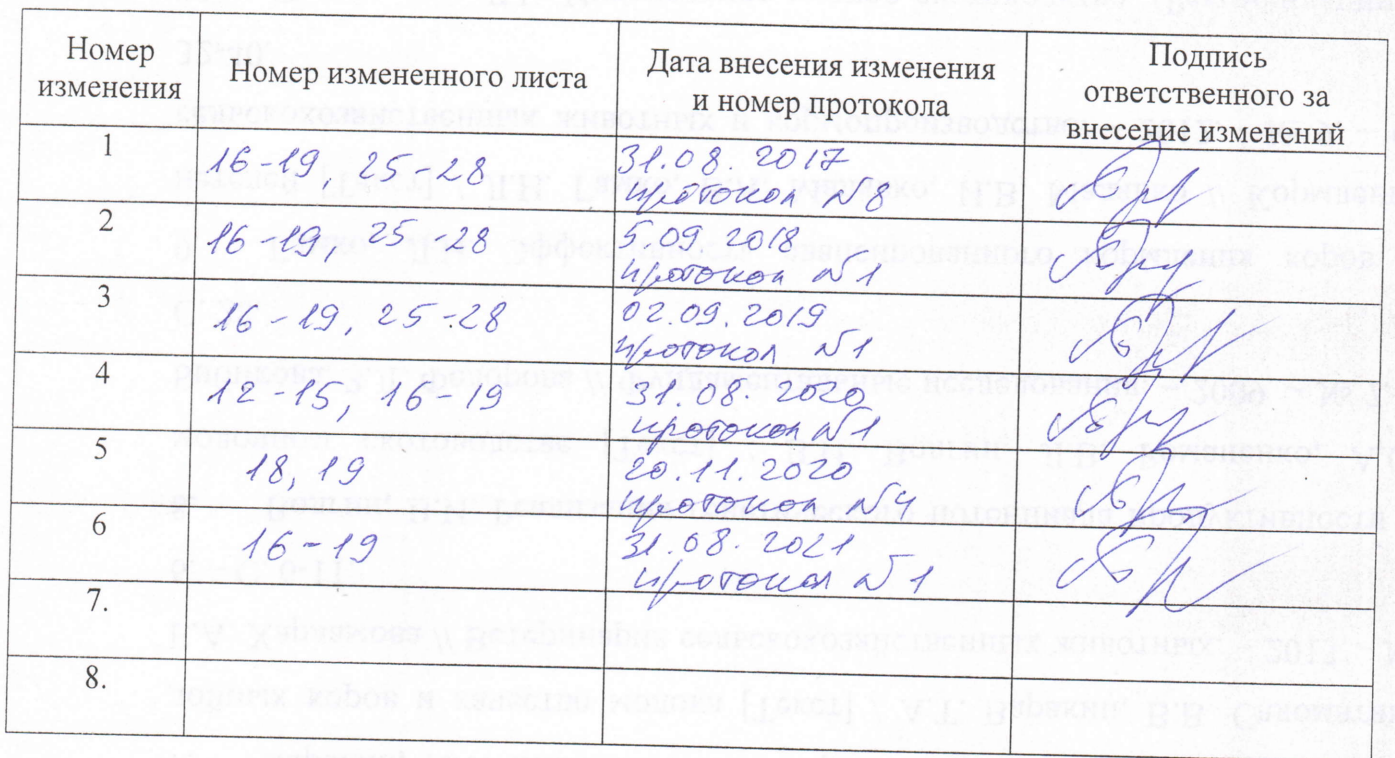 Номер изменения
Номер измененного листа
Дата внесения изменения и номер протокола
Подпись ответственного за внесение изменений
1
16-19, 25-28
31.08.2017
протокол №8
2
16-19, 25-28
5.09.2018
протокол №1
3
16-19, 25-28
02.09.2019
протокол №1
4
12-15, 16-19
31.08.2020
протокол №1
5
18, 19
20.11.2020
протокол №4
6
16-19
31.08.2021
протокол №1
7.
8.